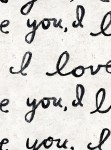 e you, I l
I love
e you, I l
I love
e you, I l